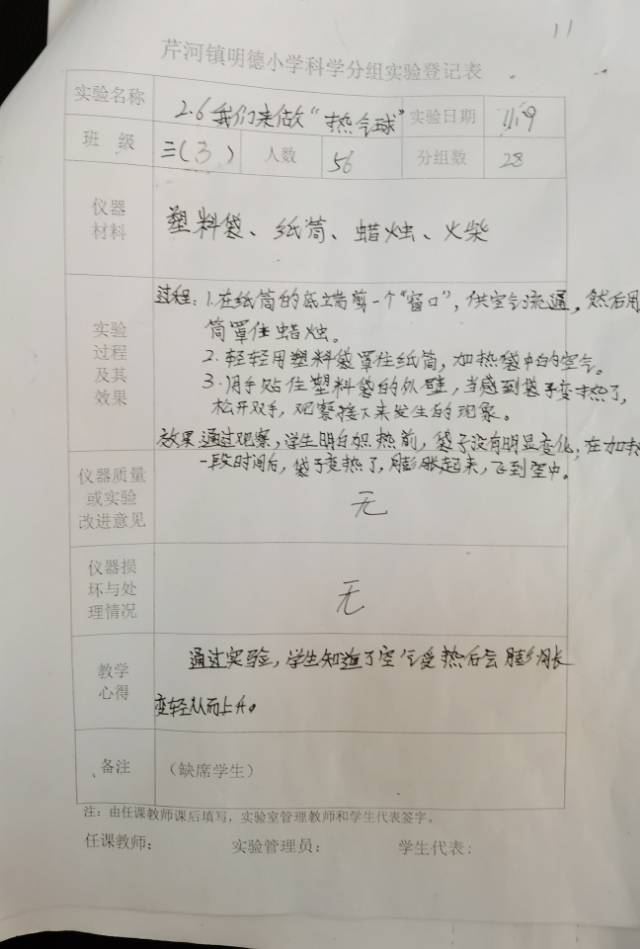 11
芹河镇明德小学科学分组实验登记表
实验名称 2.6 我们来做“热气球” 实验日期 11.19
班 级 三(3) 人数 56 分组数 28
仪器材料 塑料袋、纸筒、蜡烛、火柴
实验过程及其效果
过程:1.在纸筒的底端剪一个“窗口”,供空气流通,然后用
筒罩住蜡烛。
2.轻轻用塑料袋罩住纸筒,加热袋中的空气。
3.用手贴住塑料袋的外壁,当感到袋子变热了,
松开双手,观察接下来发生的现象。
效果 通过观察,学生明白加热前,袋子没有明显变化,在加热
一段时间后,袋子变热了,膨胀起来,飞到空中。
仪器质量或实验改进意见 无
仪器损坏与处理情况 无
教学心得 通过实验,学生知道了空气受热后会膨胀
变轻从而上升。
备注 (缺席学生)
注:由任课教师课后填写,实验室管理教师和学生代表签字。
任课教师: 实验管理员: 学生代表: